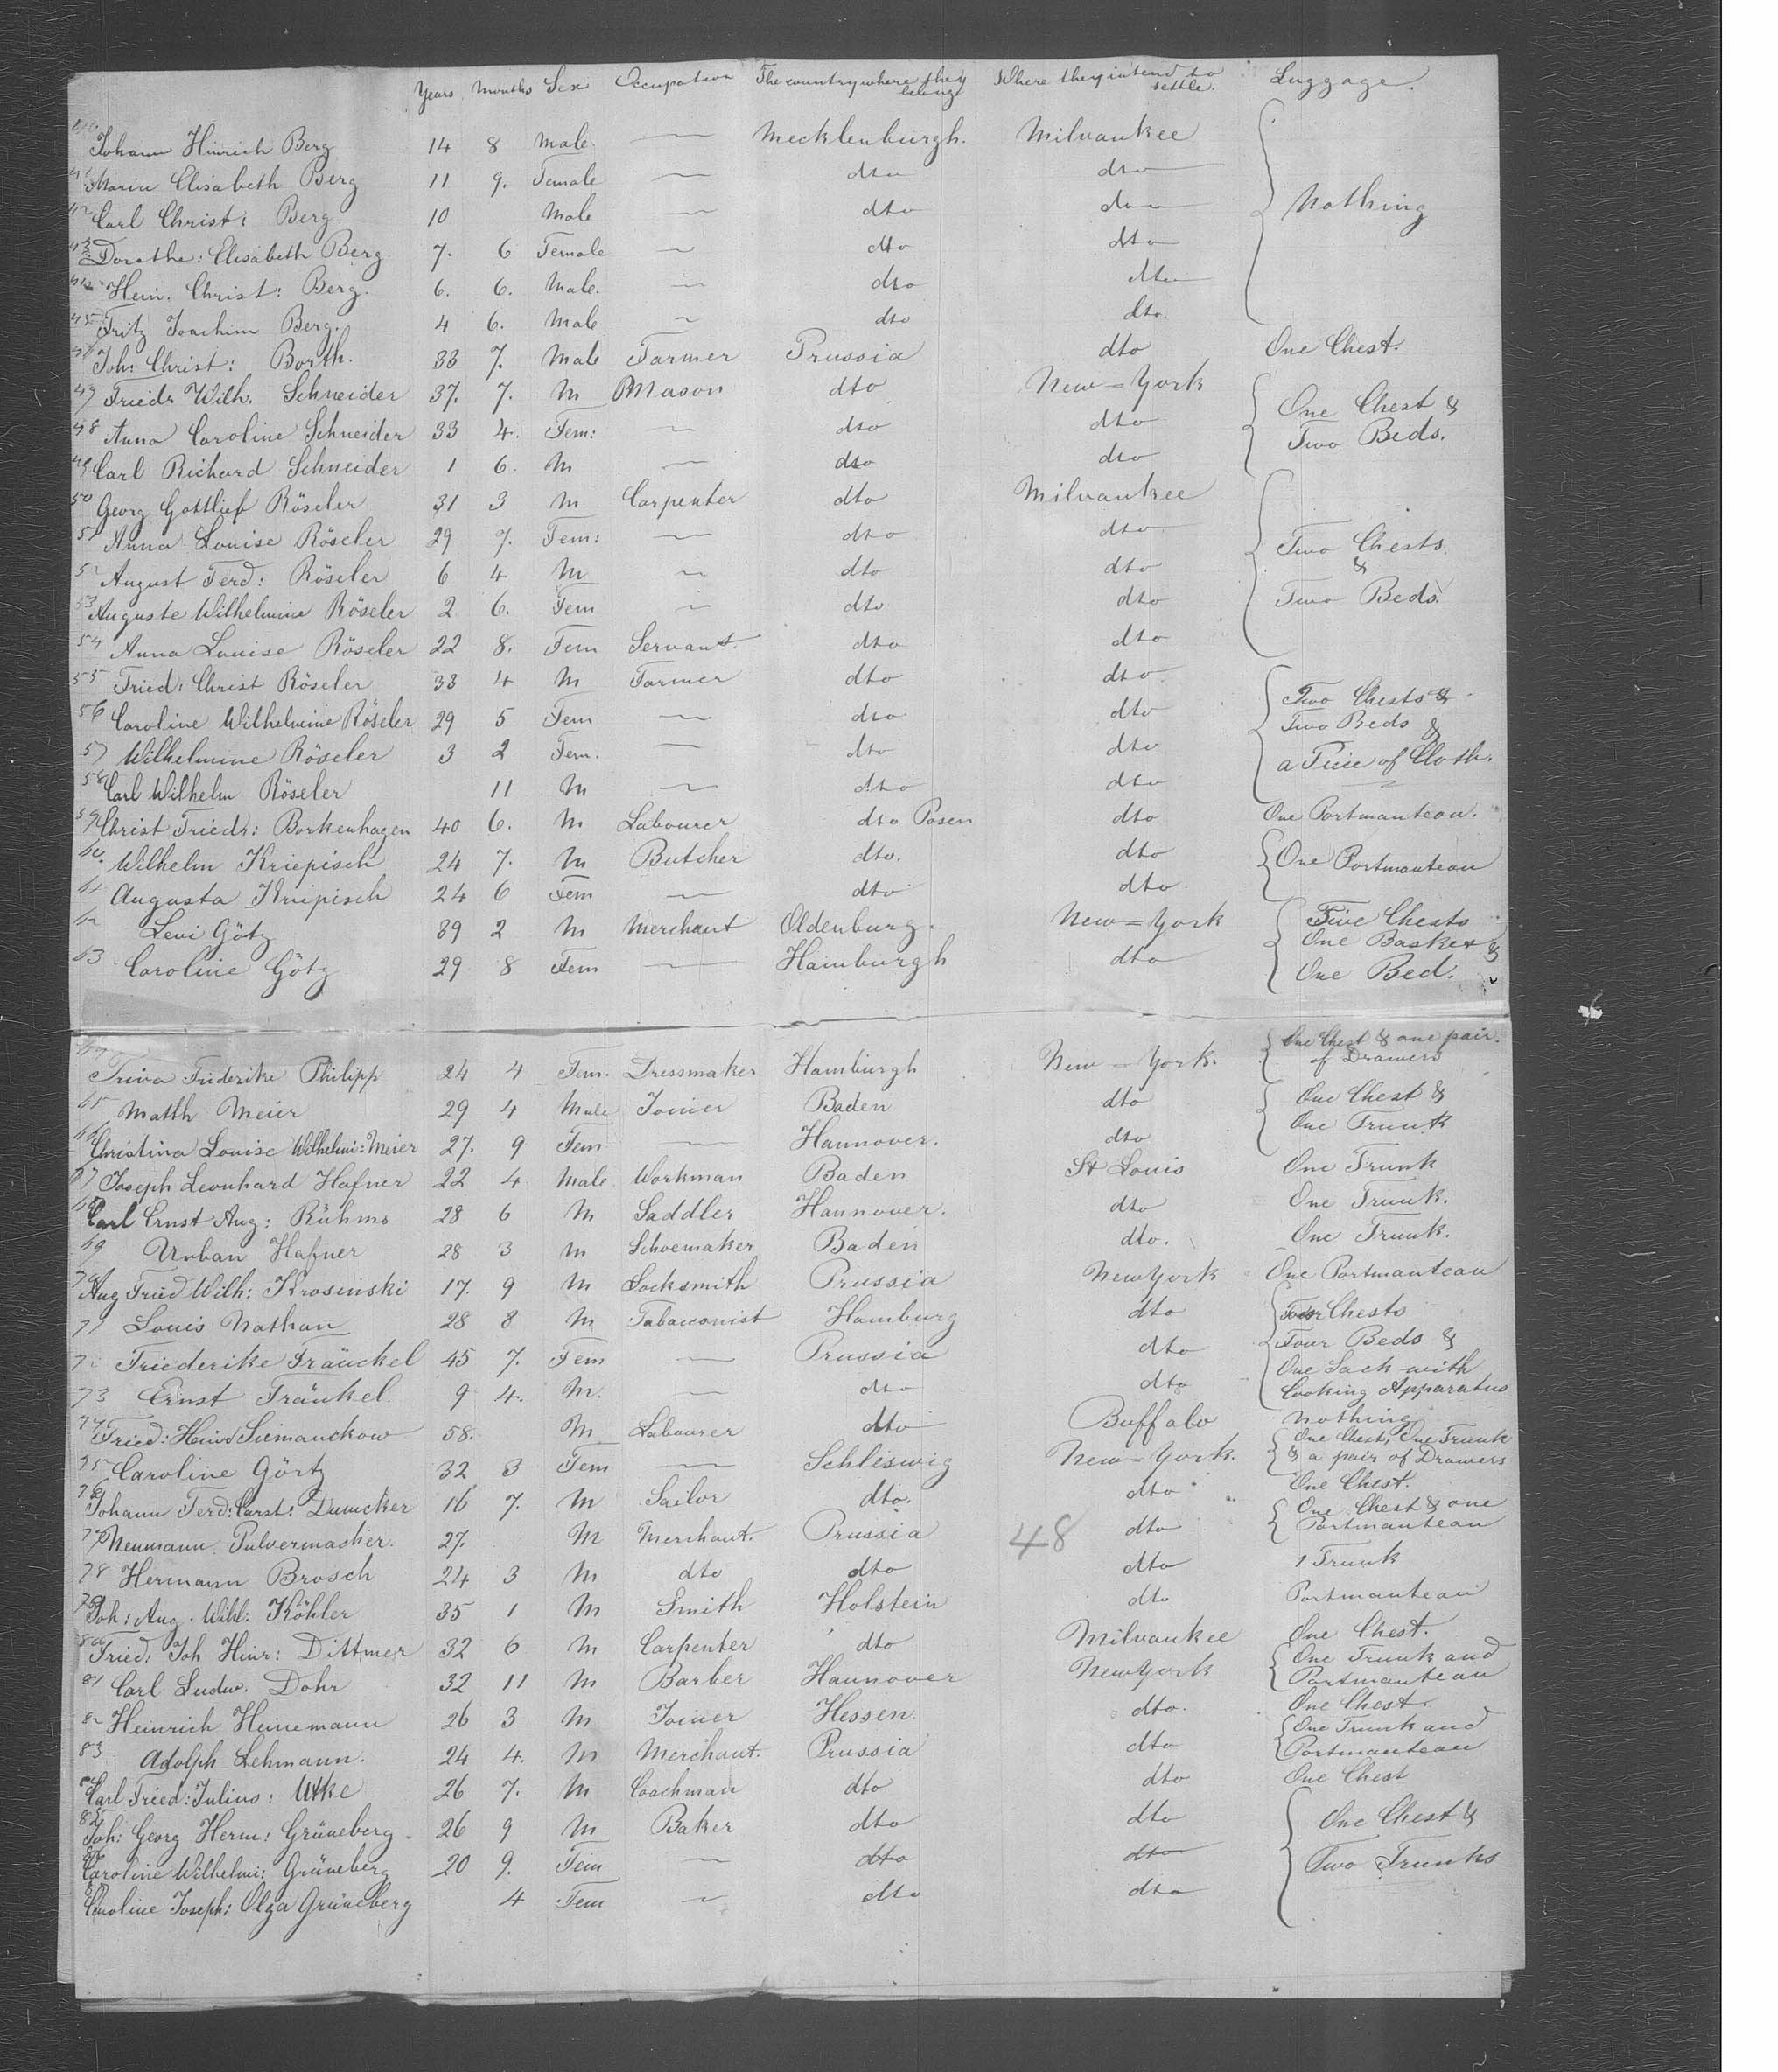 Years Months Sex Occupation The country where they belong Where they intend to settle. Luggage.
40 Johann Hinrich Berg 14 8 Male — Mecklenburgh. Milvaukee Nothing
41 Maria Elisabeth Berg 11 9. Female — dto dto
42 Carl Christ: Berg 10 Male — dto dto
43 Dorothe: Elisabeth Berg 7. 6 Female — dto dto
44 Hein. Christ: Berg. 6. 6. Male. — dto dto
45 Fritz Joachim Berg. 4 6. Male — dto dto.
46 Joh: Christ: Borth. 33 7. Male Farmer Prussia dto One Chest.
47 Friedr Wilh. Schneider 37. 7. M Mason dto New=York One Chest &
48 Anna Caroline Schneider 33 4. Fem: — dto dto Two Beds.
49 Carl Richard Schneider 1 6. M — dto dto
50 Georg Gottlieb Röseler 31 3 M Carpenter dto Milvaukee
51 Anna Louise Röseler 29 7. Fem: — dto dto Two Chests
52 August Ferd: Röseler 6 4 M — dto dto &
53 Auguste Wilhelmine Röseler 2 6. Fem — dto dto Two Beds.
54 Anna Louise Röseler 22 8. Fem Servant. dto dto
55 Fried: Christ Röseler 33 4 M Farmer dto dto Two Chests &
56 Caroline Wilhelmine Röseler 29 5 Fem — dto dto Two Beds &
57 Wilhelmine Röseler 3 2 Fem. — dto dto a Piece of Cloth.
58 Carl Wilhelm Röseler 11 M — dto dto
59 Christ Friedr: Borkenhagen 40 6. M Labourer dto Posen dto One Portmanteau.
60. Wilhelm Kriepisch 24 7. M Butcher dto. dto One Portmanteau
61 Augusta Kriepisch 24 6 Fem — dto dto
62 Levi Götz 39 2 M Merchant Oldenburg. New=York Five Chests One Basket &
63 Caroline Götz 29 8 Fem — Hamburgh dto One Bed.
64 Trina Friderike Philipp 24 4 Fem. Dressmaker Hamburgh New=York. One Chest & one pair of Drawers
65 Matth Meier 29 4 Male Joiner Baden dto One Chest &
66 Christina Louise Wilhelmi: Meier 27. 9 Fem — Hannover. dto One Trunk
67 Joseph Leonhard Hafner 22 4 Male Workman Baden St Louis One Trunk
68 Carl Ernst Aug: Rühms 28 6 M Saddler Hannover. dto One Trunk.
69 Urban Hafner 28 3 M Schoemaker Baden dto. One Trunk.
70 Aug Fried Wilh: Krosinski 17. 9 M Locksmith Prussia New York One Portmanteau
71 Louis Nathan 28 8 M Tabacconist Hamburg dto Four Chests
72 Friederike Fränckel 45 7. Fem — Prussia dto Four Beds &
73 Ernst Fränkel. 9 4. M. — dto dto One Sack with Cooking Apparatus
74 Fried: Heinr Siemanckow 58. M Labourer dto Buffalo Nothing
75 Caroline Görtz 32 8 Fem — Schleswig New=York. One Chest, One Trunk & a pair of Drawers
76 Johann Ferd: Carst: Duncker 16 7. M Sailor dto. dto One Chest.
77 Neumann Pulvermacher. 27. M Merchant. Prussia 48 dto One Chest & one Portmanteau
78 Hermann Brosch 24 3 M dto dto dto 1 Trunk
79 Joh: Aug. Wihl: Köhler 35 1 M Smith Holstein dto Portmanteau
80 Fried: Joh Heinr: Dittmer 32 6 M Carpenter dto Milvaukee One Chest.
81 Carl Ludw. Dohr 32 11 M Barber Hannover New York One Trunk and Portmanteau
82 Heinrich Heinemann 26 3 M Joiner Hessen. dto. One Chest.
83 Adolph Lehmann. 24 4. M Merchant. Prussia dto One Trunk and Portmanteau
Carl Fried: Julius: Utke 26 7. M Coachman dto dto One Chest
85 Joh: Georg Herm: Grüneberg. 26 9 M Baker dto dto One Chest &
Caroline Wilhelmi: Grüneberg 20 9. Fem — dto dto Two Trunks
Caroline Joseph: Olga Grüneberg 4 Fem — dto dto